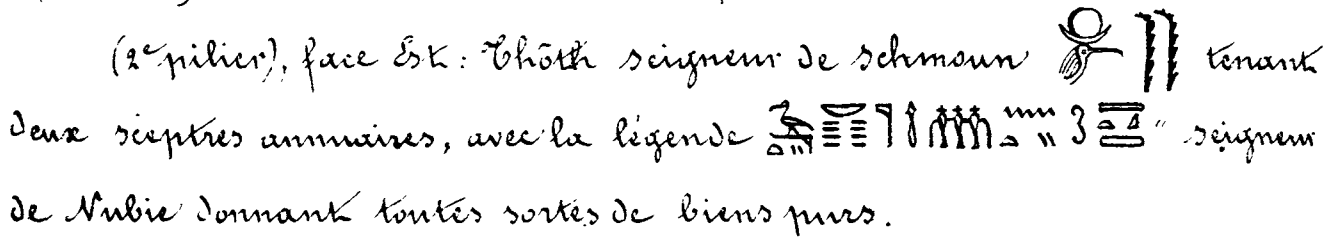 (2e pilier), face Est : Thōth seigneur de Schmoun tenant
deux sceptres annuaires, avec la légende " seigneur
de Nubie donnant toutes sortes de biens purs.